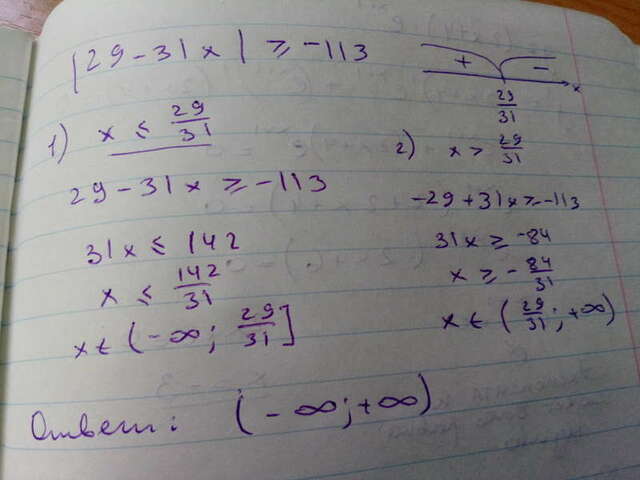 |29 - 31x| ≥ -113
+ -
x
29/31
1) x ≤ 29/31
29 - 31x ≥ -113
31x ≤ 142
x ≤ 142/31
x ∈ (-∞; 29/31]
2) x > 29/31
-29 + 31x ≥ -113
31x ≥ -84
x ≥ -84/31
x ∈ (29/31; +∞)
Ответ: (-∞; +∞)